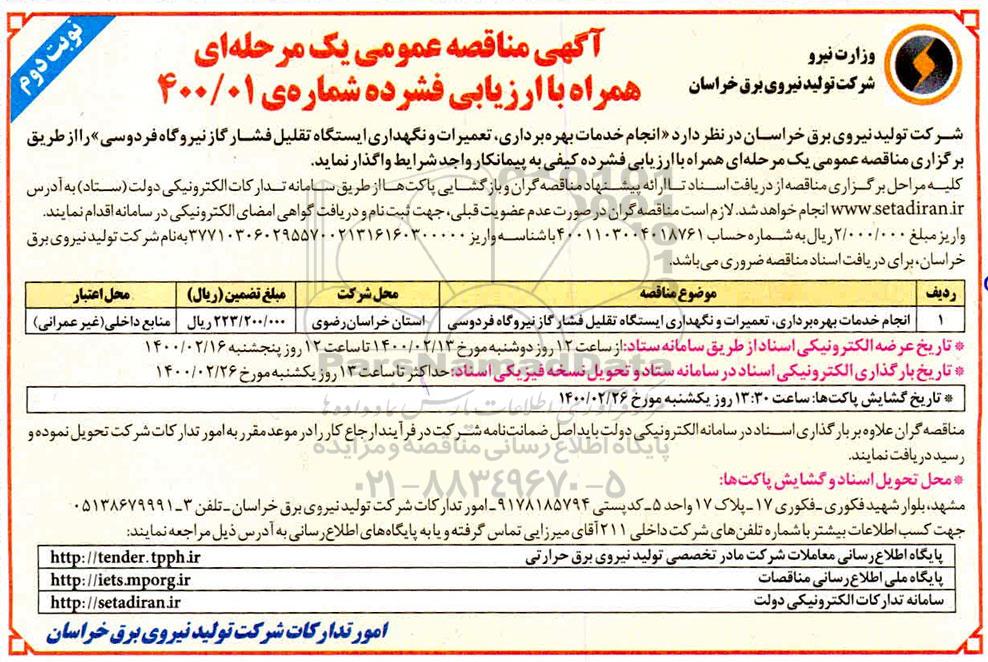 نوبت دوم
وزارت نیرو
شرکت تولید نیروی برق خراسان
آگهی مناقصه عمومی یک مرحله‌ای
همراه با ارزیابی فشرده شماره‌ی ۴۰۰/۰۱
شرکت تولید نیروی برق خراسان در نظر دارد «انجام خدمات بهره‌برداری، تعمیرات و نگهداری ایستگاه تقلیل فشار گاز نیروگاه فردوسی» را از طریق
برگزاری مناقصه عمومی یک مرحله‌ای همراه با ارزیابی فشرده کیفی به پیمانکار واجد شرایط واگذار نماید.
کلیه مراحل برگزاری مناقصه از دریافت اسناد تا ارائه پیشنهاد مناقصه‌گران و بازگشایی پاکت‌ها از طریق سامانه تدارکات الکترونیکی دولت (ستاد) به آدرس
www.setadiran.ir انجام خواهد شد. لازم است مناقصه‌گران در صورت عدم عضویت قبلی، جهت ثبت نام و دریافت گواهی امضای الکترونیکی در سامانه اقدام نمایند.
واریز مبلغ ۲/۰۰۰/۰۰۰ ریال به شماره حساب ۴۰۰۱۱۰۳۰۰۴۰۱۸۷۶۱ با شناسه واریز ۳۷۷۱۰۳۰۶۰۲۹۵۵۷۰۰۲۱۳۱۶۱۶۰۳۰۰۰۰۰ به نام شرکت تولید نیروی برق
خراسان، برای دریافت اسناد مناقصه ضروری می‌باشد.
ردیف موضوع مناقصه محل شرکت مبلغ تضمین (ریال) محل اعتبار
۱ انجام خدمات بهره‌برداری، تعمیرات و نگهداری ایستگاه تقلیل فشار گاز نیروگاه فردوسی استان خراسان رضوی ۲۲۳/۲۰۰/۰۰۰ ریال منابع داخلی (غیر عمرانی)
* تاریخ عرضه الکترونیکی اسناد از طریق سامانه ستاد: از ساعت ۱۲ روز دوشنبه مورخ ۱۴۰۰/۰۲/۱۳ تا ساعت ۱۲ روز پنجشنبه ۱۴۰۰/۰۲/۱۶
* تاریخ بارگذاری الکترونیکی اسناد در سامانه ستاد و تحویل نسخه فیزیکی اسناد: حداکثر تا ساعت ۱۳ روز یکشنبه مورخ ۱۴۰۰/۰۲/۲۶
* تاریخ گشایش پاکت‌ها: ساعت ۱۳:۳۰ روز یکشنبه مورخ ۱۴۰۰/۰۲/۲۶
مناقصه‌گران علاوه بر بارگذاری اسناد در سامانه الکترونیکی دولت باید اصل ضمانت‌نامه شرکت در فرآیند ارجاع کار را در موعد مقرر به امور تدارکات شرکت تحویل نموده و
رسید دریافت نمایند.
* محل تحویل اسناد و گشایش پاکت‌ها:
مشهد، بلوار شهید فکوری ـ فکوری ۱۷ ـ پلاک ۱۷ واحد ۵ ـ کدپستی ۹۱۷۸۱۸۵۷۹۴ ـ امور تدارکات شرکت تولید نیروی برق خراسان ـ تلفن ۳ ـ ۰۵۱۳۸۶۷۹۹۹۱
جهت کسب اطلاعات بیشتر با شماره تلفن‌های شرکت داخلی ۲۱۱ آقای میرزایی تماس گرفته و یا به پایگاه‌های اطلاع رسانی به آدرس ذیل مراجعه نمایند:
پایگاه اطلاع رسانی معاملات شرکت مادر تخصصی تولید نیروی برق حرارتی http://tender.tpph.ir
پایگاه ملی اطلاع رسانی مناقصات http://iets.mporg.ir
سامانه تدارکات الکترونیکی دولت http://setadiran.ir
امور تدارکات شرکت تولید نیروی برق خراسان
ParsNamadData
پایگاه اطلاع رسانی مناقصه و مزایده
۰۲۱-۸۸۳۴۹۶۷۰-۵